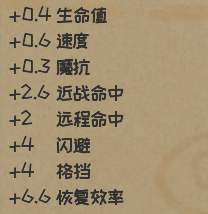 +0.4 生命值
+0.6 速度
+0.3 魔抗
+2.6 近战命中
+2 远程命中
+4 闪避
+4 格挡
+6.6 恢复效率